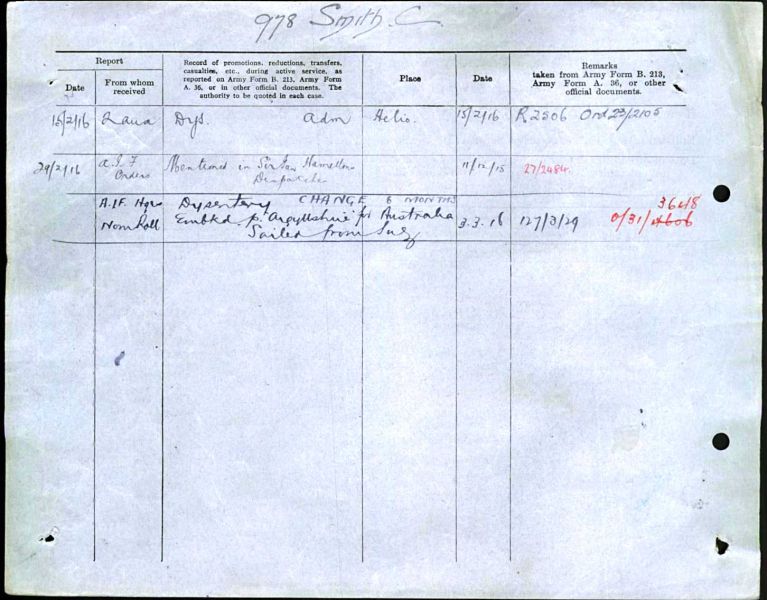 978 Smith. C
Report
Date
From whom
received
Record of promotions, reductions, transfers,
casualties, etc., during active service, as
reported on Army Form B. 213, Army Form
A. 36, or in other official documents. The
authority to be quoted in each case.
Place
Date
Remarks
taken from Army Form B. 213,
Army Form A. 36, or other
official documents.
15/2/16 Dys. adm Helio. 15/2/16 R2506
29/2/16 A.I.F Orders Mentioned in Sir Ian Hamiltons 11/12/15 27/2484.
Despatch
A.I.F. Hqrs Dysentery CHANGE 6 MONTHS 3648
Nom Roll Embkd p. "Argyllshire" for Australia 3.3.16 127/3/29 0/31/
Sailed from Suez